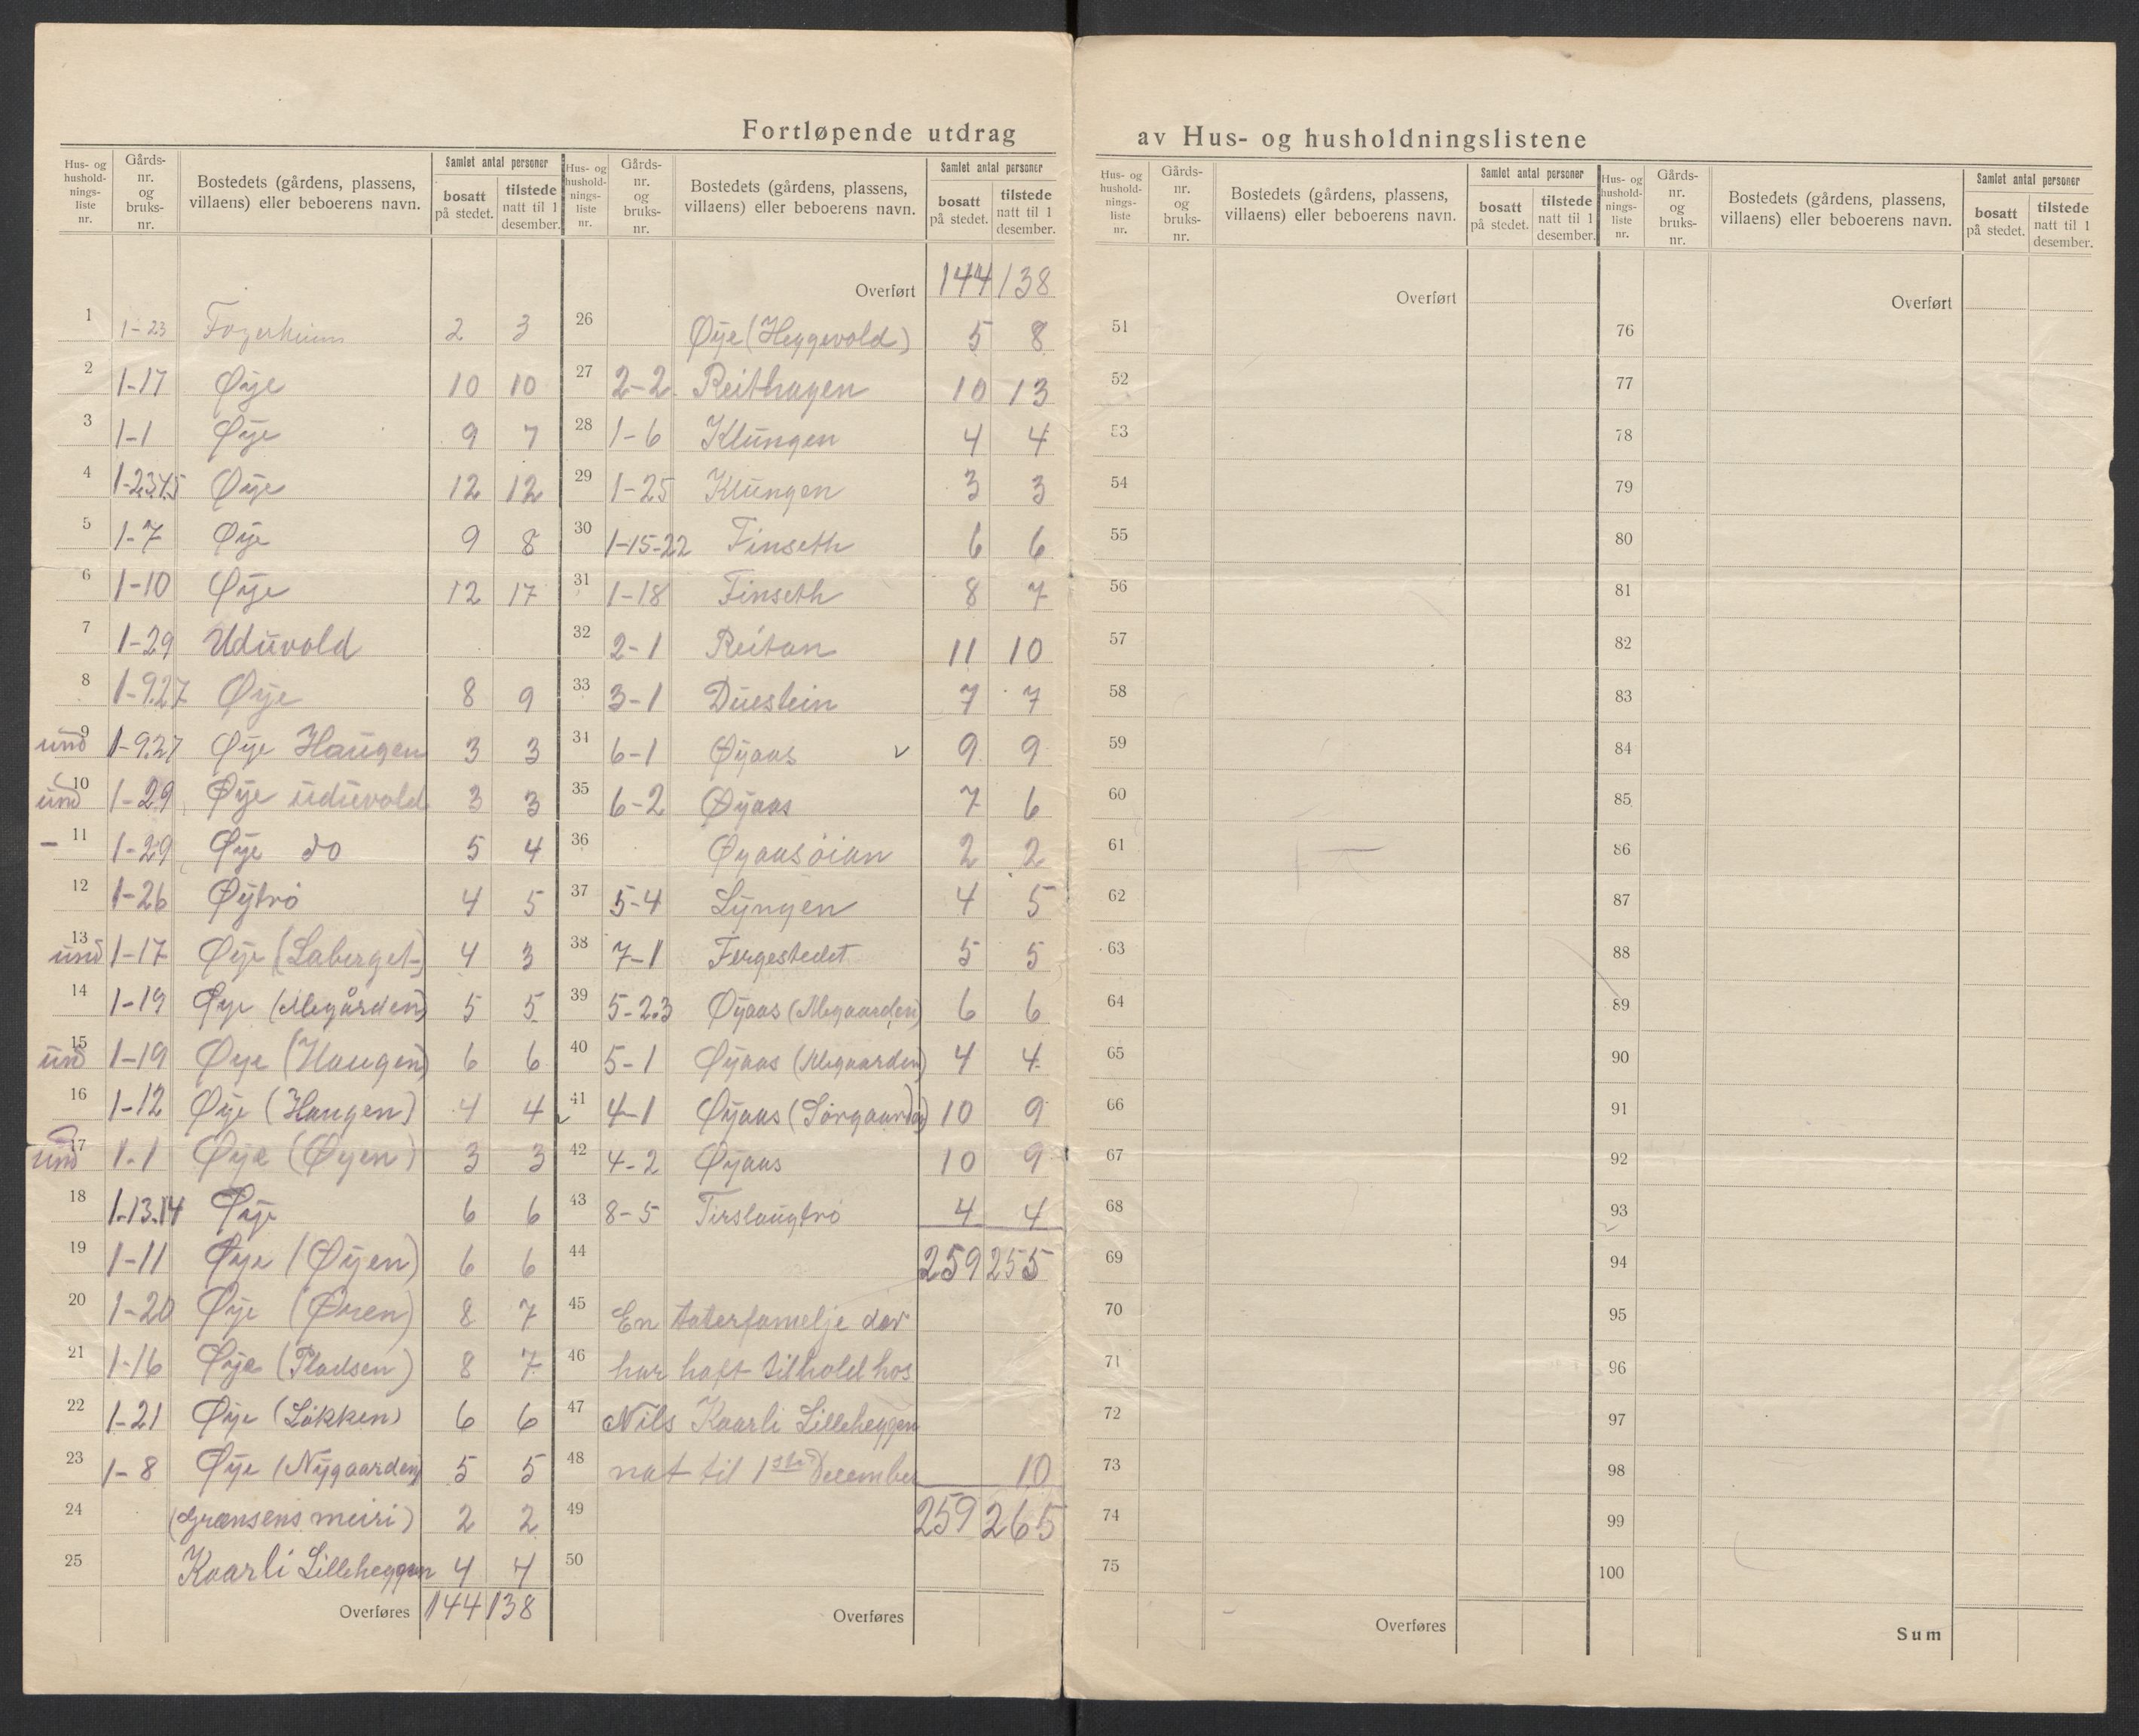 Fortløpende utdrag av Hus- og husholdningslistene
Hus- og husholdnings-liste nr. Gårds-nr. og bruks-nr. Bostedets (gårdens, plassens, villaens) eller beboerens navn. Samlet antal personer bosatt på stedet. tilstede natt til 1 desember.
1 1-23 Fagerheim 2 3
2 1-17 Øye 10 10
3 1-1 Øye 9 7
4 1-2345 Øye 12 12
5 1-7 Øye 9 8
6 1-10 Øye 12 17
7 1-29 Uduvold
8 1-9.27 Øye 8 9
und 9 1-9.27 Øye Haugen 3 3
und 10 1-29 Øye uduvold 3 3
– 11 1-29 Øye do 5 4
12 1-26 Øytrø 4 5
und 13 1-17 Øye (Laberget) 4 3
14 1-19 Øye (Megården) 5 5
und 15 1-19 Øye (Haugen) 6 6
16 1-12 Øye (Haugen) 4 4
und 17 1.1 Øye (Øyen) 3 3
18 1.13.14 Øye 6 6
19 1-11 Øye (Øyen) 6 6
20 1-20 Øye (Øren) 8 7
21 1-16 Øye (Pladsen) 8 7
22 1-21 Øye (Løkken) 6 6
23 1-8 Øye (Nygaarden) 5 5
24 (Grænsens meiri) 2 2
25 Kaarli Lilleheggen 4 4
Overføres 144 138
Hus- og husholdnings-liste nr. Gårds-nr. og bruks-nr. Bostedets (gårdens, plassens, villaens) eller beboerens navn. Samlet antal personer bosatt på stedet. tilstede natt til 1 desember.
Overført 144 138
26 Øye (Heggevold) 5 8
27 2-2 Reithagen 10 13
28 1-6 Klungen 4 4
29 1-25 Klungen 3 3
30 1-15-22 Finseth 6 6
31 1-18 Finseth 8 7
32 2-1 Reitan 11 10
33 3-1 Duestein 7 7
34 6-1 Øyaas 9 9
35 6-2 Øyaas 7 6
36 Øyaasøian 2 2
37 5-4 Lyngen 4 5
38 7-1 Fergestedet 5 5
39 5-2.3 Øyaas (Megaarden) 6 6
40 5-1 Øyaas (Megaarden) 4 4
41 4-1 Øyaas (Sørgaarden) 10 9
42 4-2 Øyaas 10 9
43 8-5 Tirslaugtrø 4 4
44 259 255
45 En taterfamelje der
46 har haft tilhold hos
47 Nils Kaarli Lilleheggen
48 nat til 1ste December 10
49 259 265
50
Overføres
Hus- og husholdnings-liste nr. Gårds-nr. og bruks-nr. Bostedets (gårdens, plassens, villaens) eller beboerens navn. Samlet antal personer bosatt på stedet. tilstede natt til 1 desember.
Overført
51
52
53
54
55
56
57
58
59
60
61
62
63
64
65
66
67
68
69
70
71
72
73
74
75
Overføres
Hus- og husholdnings-liste nr. Gårds-nr. og bruks-nr. Bostedets (gårdens, plassens, villaens) eller beboerens navn. Samlet antal personer bosatt på stedet. tilstede natt til 1 desember.
Overført
76
77
78
79
80
81
82
83
84
85
86
87
88
89
90
91
92
93
94
95
96
97
98
99
100
Sum